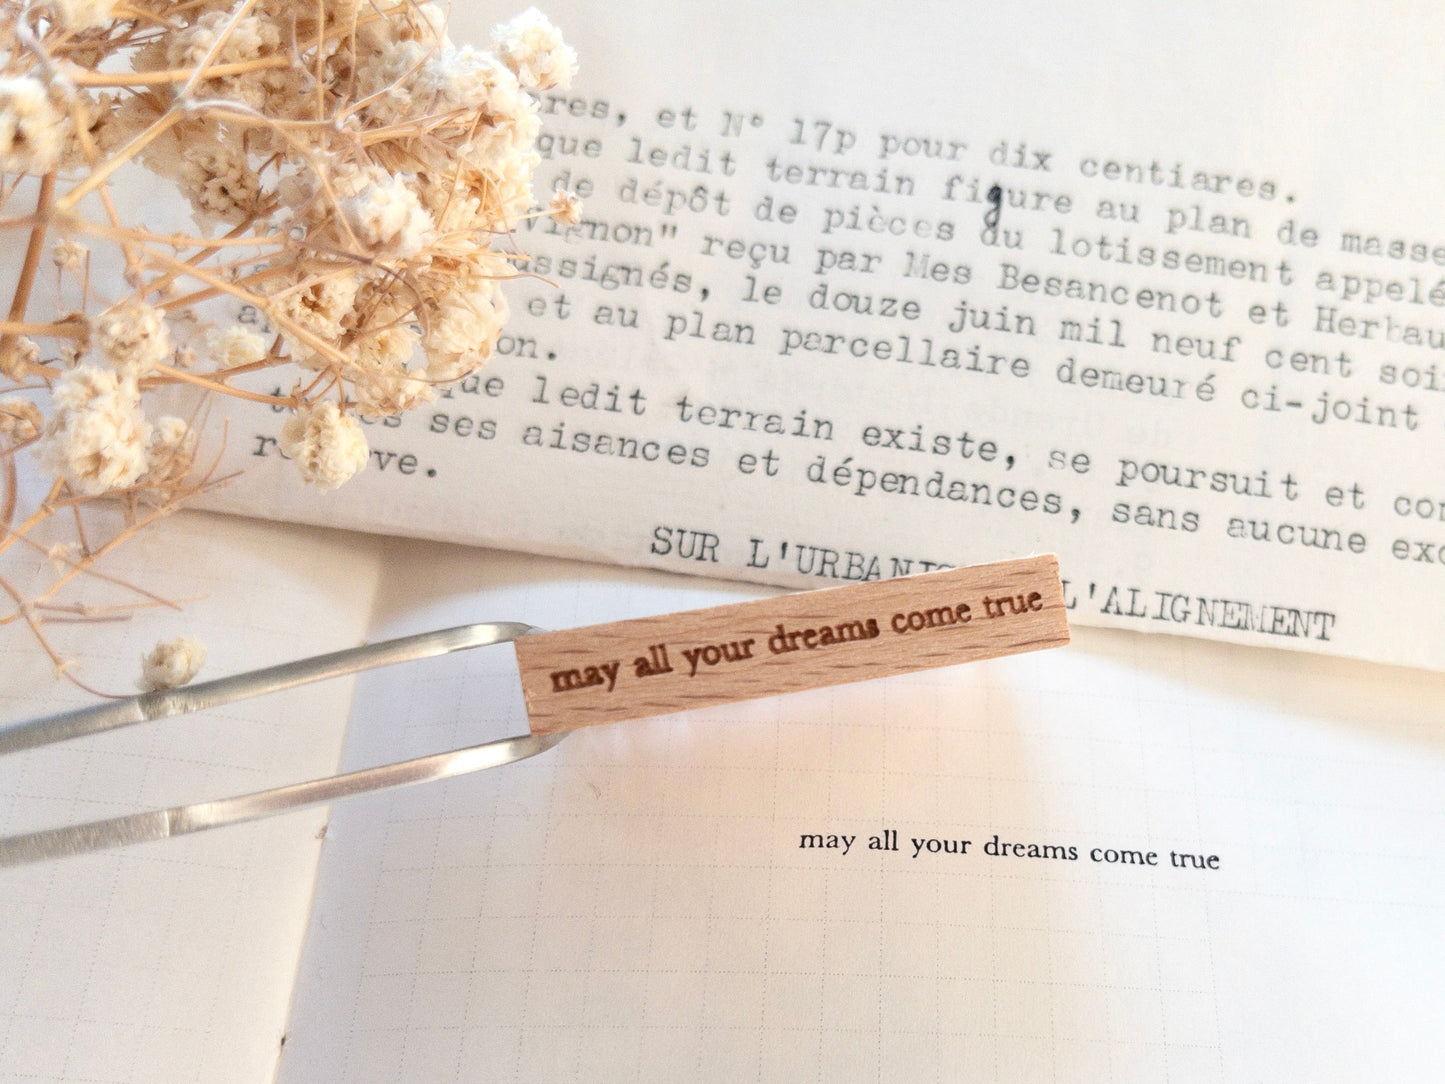 res, et N° 17p pour dix centiares.
que ledit terrain figure au plan de masse
de dépôt de pièces du lotissement appelé
vignon" reçu par Mes Besancenot et Herbau
ssignés, le douze juin mil neuf cent soi
et au plan parcellaire demeuré ci-joint
on.
que ledit terrain existe, se poursuit et co
ses aisances et dépendances, sans aucune exc
rve.
SUR L'URBANIS L'ALIGNEMENT
may all your dreams come true
may all your dreams come true